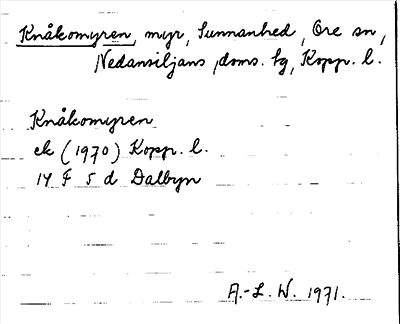 Knåkomyren, myr, Sunnanhed, Ore sn,
Nedansiljans doms. hg, Kopp. l.
Knåkomyren
ek (1970) Kopp. l.
14 F 5 d Dalbyn
A.-L. W. 1971.